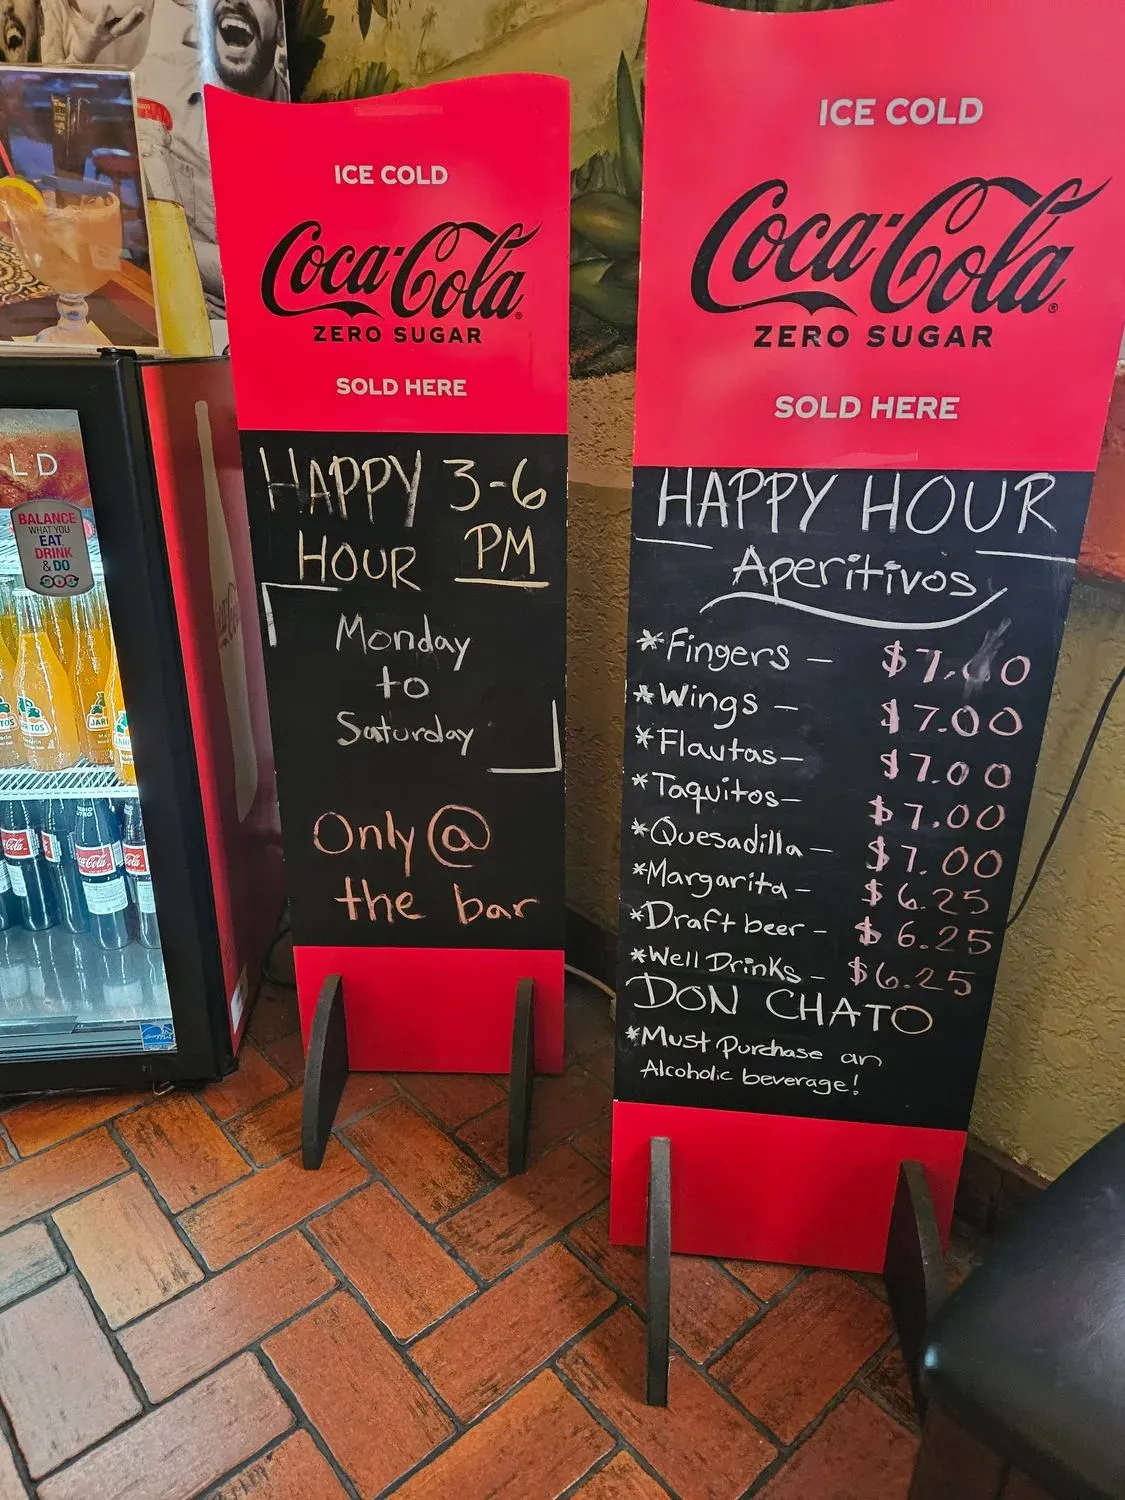 ICE COLD
Coca-Cola®
ZERO SUGAR
SOLD HERE
HAPPY 3-6
HOUR PM
Monday
to
Saturday
Only @
the bar
ICE COLD
Coca-Cola®
ZERO SUGAR
SOLD HERE
HAPPY HOUR
Aperitivos
*Fingers – $7.00
*Wings – $7.00
*Flautas– $7.00
*Taquitos– $7.00
*Quesadilla – $7.00
*Margarita – $6.25
*Draft beer – $6.25
*Well Drinks – $6.25
DON CHATO
*Must Purchase an
Alcoholic beverage!
LD
BALANCE
WHAT YOU
EAT,
DRINK
& DO
Coca-Cola